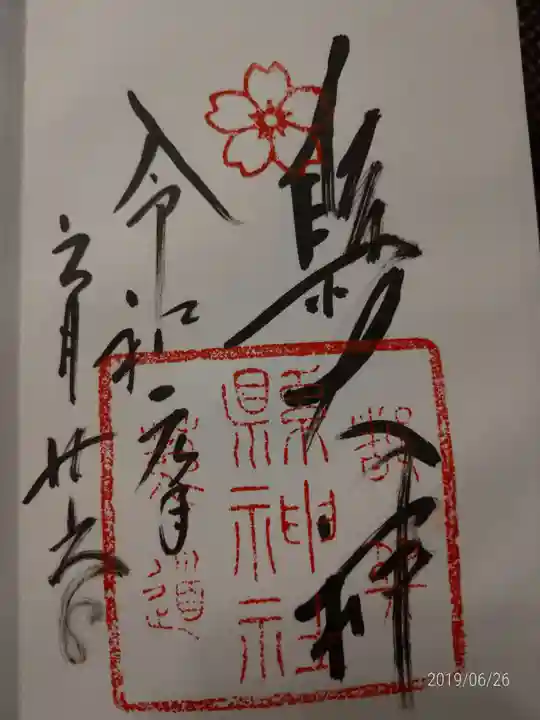 縣神
令和元年
六月廿六日
縣神社
2019/06/26